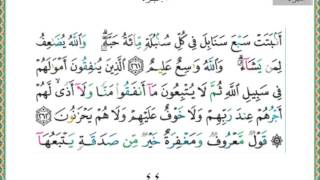 أَنۢبَتَتْ سَبْعَ سَنَابِلَ فِى كُلِّ سُنۢبُلَةٍ مِّائَةُ حَبَّةٍ ۗ وَٱللَّهُ يُضَٰعِفُ
لِمَن يَشَآءُ ۗ وَٱللَّهُ وَٰسِعٌ عَلِيمٌ ٢٦١ ٱلَّذِينَ يُنفِقُونَ أَمْوَٰلَهُمْ
فِى سَبِيلِ ٱللَّهِ ثُمَّ لَا يُتْبِعُونَ مَآ أَنفَقُوا۟ مَنًّا وَلَآ أَذًى ۙ لَّهُمْ
أَجْرُهُمْ عِندَ رَبِّهِمْ وَلَا خَوْفٌ عَلَيْهِمْ وَلَا هُمْ يَحْزَنُونَ ٢٦٢
۞ قَوْلٌ مَّعْرُوفٌ وَمَغْفِرَةٌ خَيْرٌ مِّن صَدَقَةٍ يَتْبَعُهَآ
٤٤